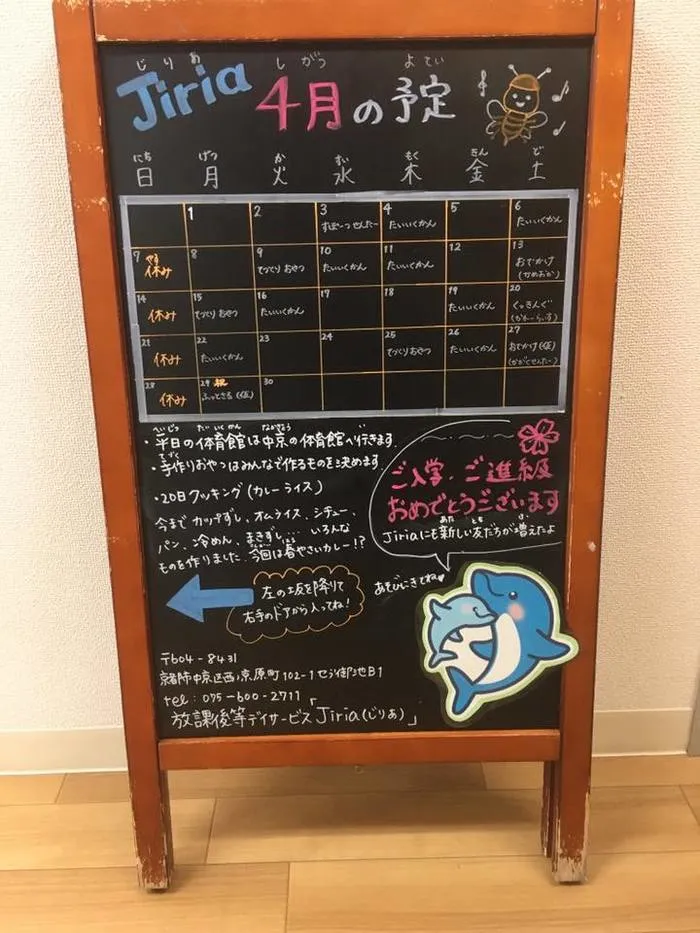 じりあ しがつ よてい
Jiria 4月の予定
にち げつ か すい もく きん ど
日 月 火 水 木 金 土
1 2 3 4 5 6
すぽーつせんたー たいいくかん たいいくかん
7 8 9 10 11 12 13
やす
休み てづくりおやつ たいいくかん たいいくかん おでかけ
(かめおか)
14 15 16 17 18 19 20
休み てづくりおやつ たいいくかん たいいくかん くっきんぐ
(かれーらいす)
21 22 23 24 25 26 27
休み たいいくかん てづくりおやつ たいいくかん おでかけ(仮)
(かがくせんたー)
28 29 祝 30
休み ふっとさる(仮)
へいじつ たいいくかん なかぎょう い
・平日の体育館は中京の体育館へ行きます。
てづく
・手作りおやつはみんなで作るものを決めます。
・20日クッキング(カレーライス)
今まで カップずし、オムライス、シチュー、
パン、冷めん、まきずし... いろんな
ものを作りました。今回は春やさいカレー!?
ご入学、ご進級
おめでとうございます
あたら とも ふ
Jiriaにも新しい友だちが増えたよ
あそびにきてね♥
左の坂を降りて
右手のドアから入ってね!
〒604-8431
京都市中京区西ノ京原町102-1 セゾン御池B1
tel: 075-600-2711
放課後等デイサービス「Jiria(じりあ)」